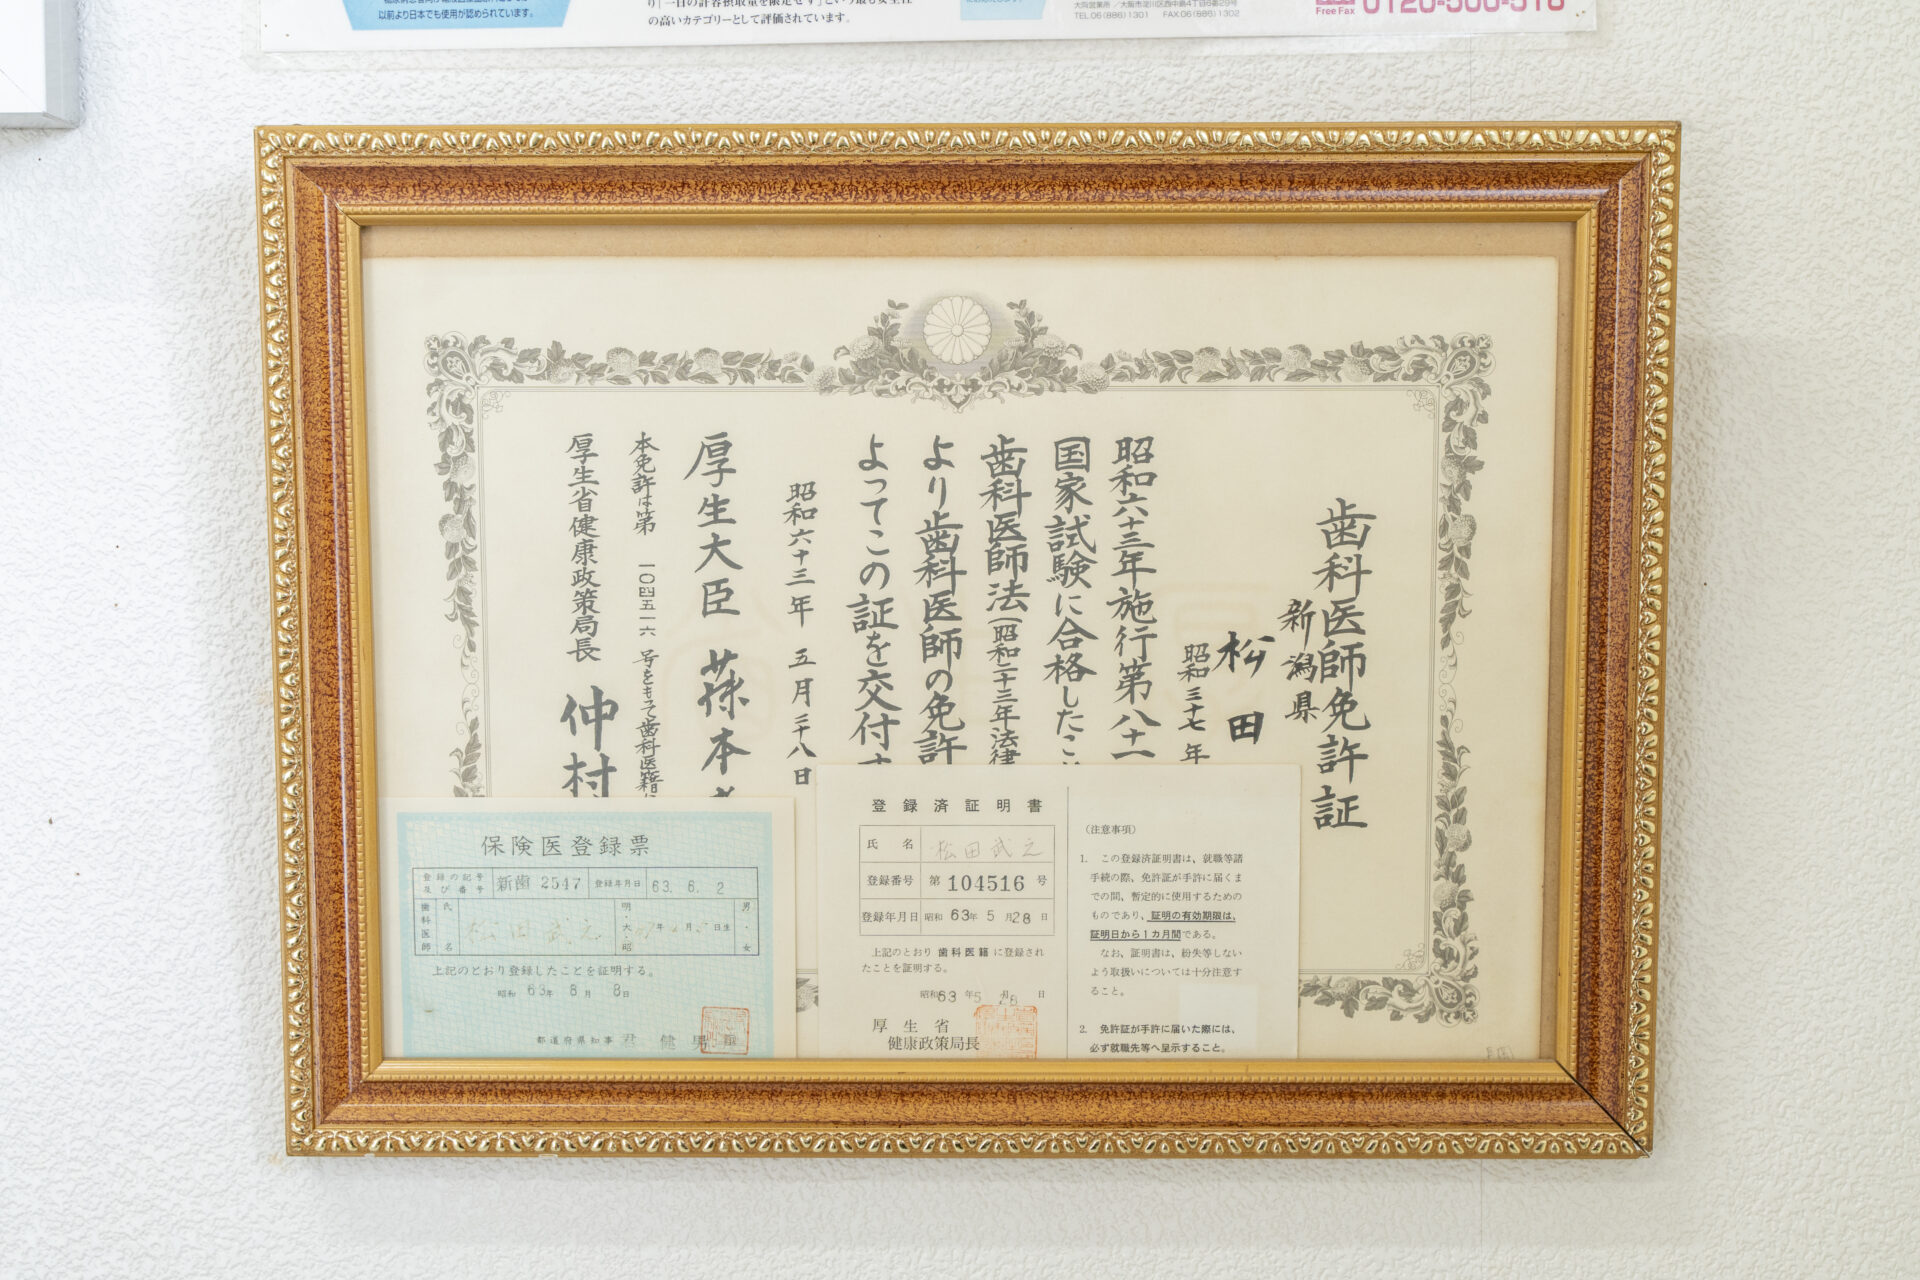 以前より日本でも使用が認められています。
り「一日の許容摂取量を限定せず」という最も安全性
の高いカテゴリーとして評価されています。
大阪営業所／大阪市淀川区西中島4丁目6番29号
TEL 06(886)1301 FAX 06(886)1302
Free Fax
歯科医師免許証
新潟県
松田
昭和三十七年
昭和六十三年施行第八十一
国家試験に合格したこ
歯科医師法(昭和二十三年法律
より歯科医師の免許
よってこの証を交付す
昭和六十三年 五月二十八日
厚生大臣
本免許は第 一〇四五一六 号をもって歯科医籍
厚生省健康政策局長 仲村
保険医登録票
登録の記号及び番号 新歯 2547 登録年月日 63. 6. 2
歯科医師 氏名 松田武之 明・大・昭 年 月 日生 男・女
上記のとおり登録したことを証明する。
昭和 63年 8月 8日
都道府県知事 君 健男
登録済証明書
氏名 松田武之
登録番号 第 104516 号
登録年月日 昭和 63年 5月28日
上記のとおり 歯科医籍 に登録され
たことを証明する。
昭和63年5月28日
厚生省
健康政策局長
(注意事項)
1. この登録済証明書は、就職等諸
手続の際、免許証が手許に届くま
での間、暫定的に使用するための
ものであり、証明の有効期限は、
証明日から1カ月間である。
なお、証明書は、紛失等しない
よう取扱いについては十分注意す
ること。
2. 免許証が手許に届いた際には、
必ず就職先等へ呈示すること。